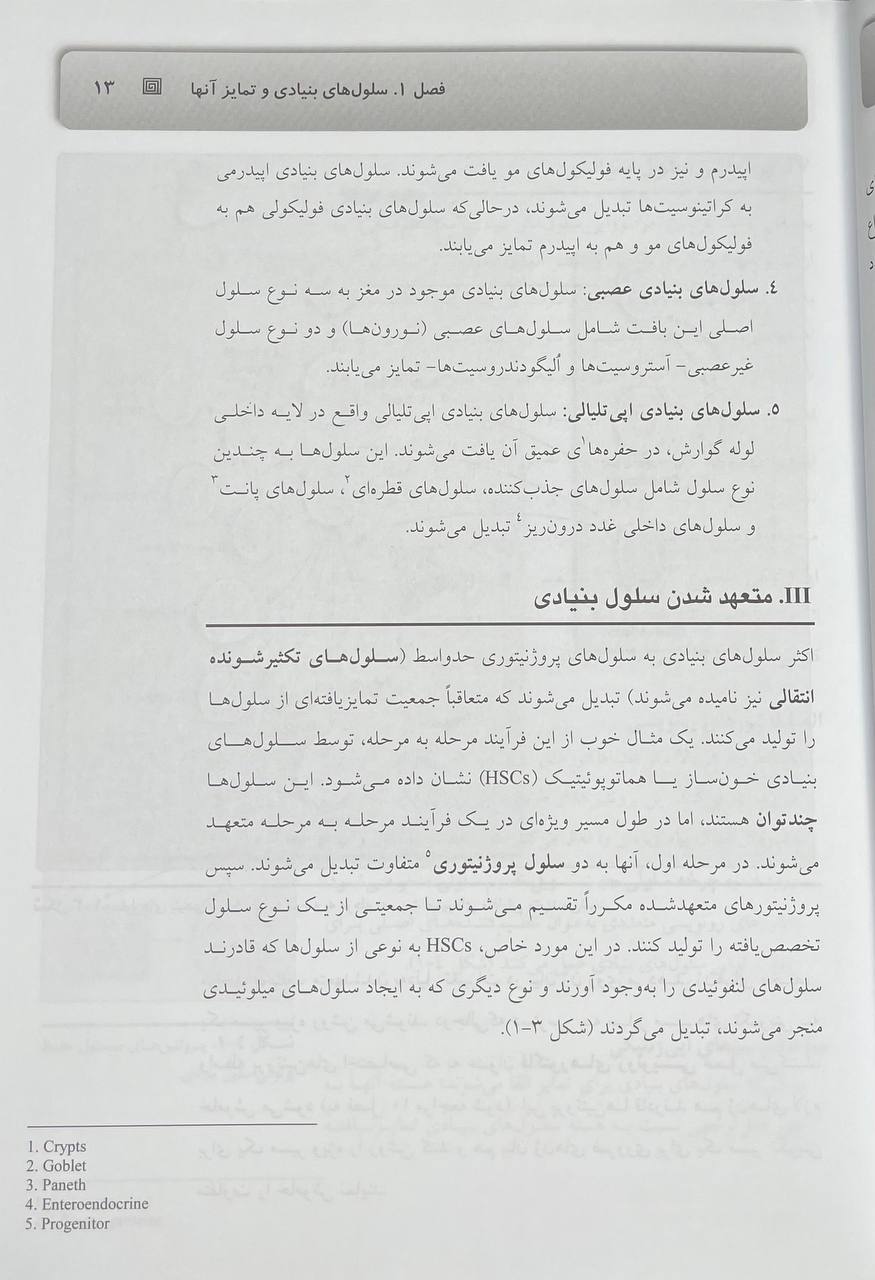 فصل ۱. سلول‌های بنیادی و تمایز آنها ۱۳
اپیدرم و نیز در پایه فولیکول‌های مو یافت می‌شوند. سلول‌های بنیادی اپیدرمی
به کراتینوسیت‌ها تبدیل می‌شوند، درحالی‌که سلول‌های بنیادی فولیکولی هم به
فولیکول‌های مو و هم به اپیدرم تمایز می‌یابند.
۴. سلول‌های بنیادی عصبی: سلول‌های بنیادی موجود در مغز به سه نوع سلول
اصلی این بافت شامل سلول‌های عصبی (نورون‌ها) و دو نوع سلول
غیرعصبی- آستروسیت‌ها و اُلیگودندروسیت‌ها- تمایز می‌یابند.
۵. سلول‌های بنیادی اپی‌تلیالی: سلول‌های بنیادی اپی‌تلیالی واقع در لایه داخلی
لوله گوارش، در حفره‌ها۱ی عمیق آن یافت می‌شوند. این سلول‌ها به چندین
نوع سلول شامل سلول‌های جذب‌کننده، سلول‌های قطره‌ای۲، سلول‌های پانت۳
و سلول‌های داخلی غدد درون‌ریز۴ تبدیل می‌شوند.
III. متعهد شدن سلول بنیادی
اکثر سلول‌های بنیادی به سلول‌های پروژنیتوری حدواسط (سلول‌های تکثیرشونده
انتقالی نیز نامیده می‌شوند) تبدیل می‌شوند که متعاقباً جمعیت تمایزیافته‌ای از سلول‌ها
را تولید می‌کنند. یک مثال خوب از این فرآیند مرحله به مرحله، توسط سلول‌های
بنیادی خون‌ساز یا هماتوپوئیتیک (HSCs) نشان داده می‌شود. این سلول‌ها
چندتوان هستند، اما در طول مسیر ویژه‌ای در یک فرآیند مرحله به مرحله متعهد
می‌شوند. در مرحله اول، آنها به دو سلول پروژنیتوری۵ متفاوت تبدیل می‌شوند. سپس
پروژنیتورهای متعهدشده مکرراً تقسیم می‌شوند تا جمعیتی از یک نوع سلول
تخصص‌یافته را تولید کنند. در این مورد خاص، HSCs به نوعی از سلول‌ها که قادرند
سلول‌های لنفوئیدی را به‌وجود آورند و نوع دیگری که به ایجاد سلول‌های میلوئیدی
منجر می‌شوند، تبدیل می‌گردند (شکل ۳-۱).
1. Crypts
2. Goblet
3. Paneth
4. Enteroendocrine
5. Progenitor